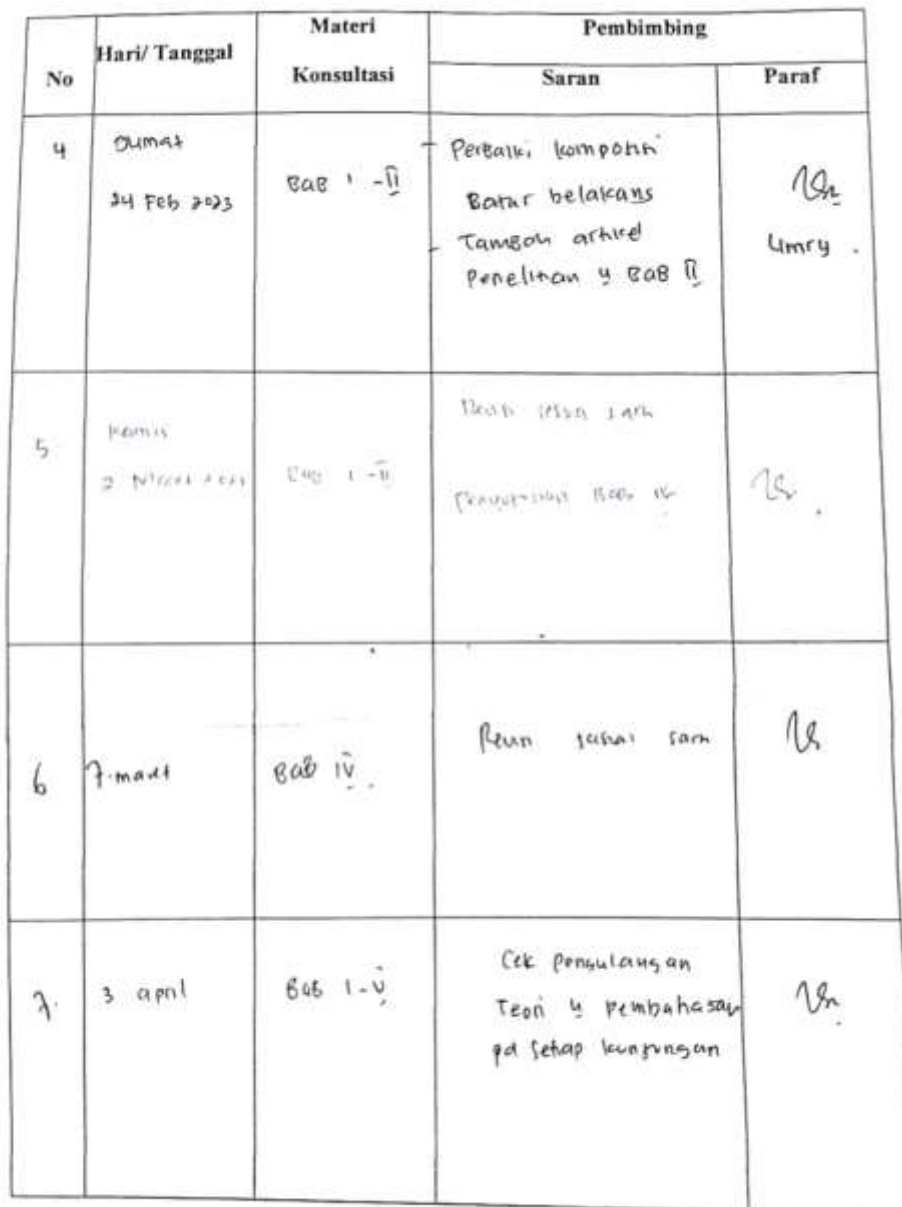 No Hari/ Tanggal Materi Konsultasi Pembimbing
Saran Paraf
4 Jumat
24 Feb 2023
BAB I - II
- Perbaiki komposisi
Batar belakang
- Tambah artikel
Penelitian y BAB II
Umry
5 Kamis
2
BAB I - II
BAB IV
6 7. maret
BAB IV
Revisi sesuai saran
7. 3 april
BAB I - V
Cek pengulangan
Teori y pembahasan
pd setiap kunjungan